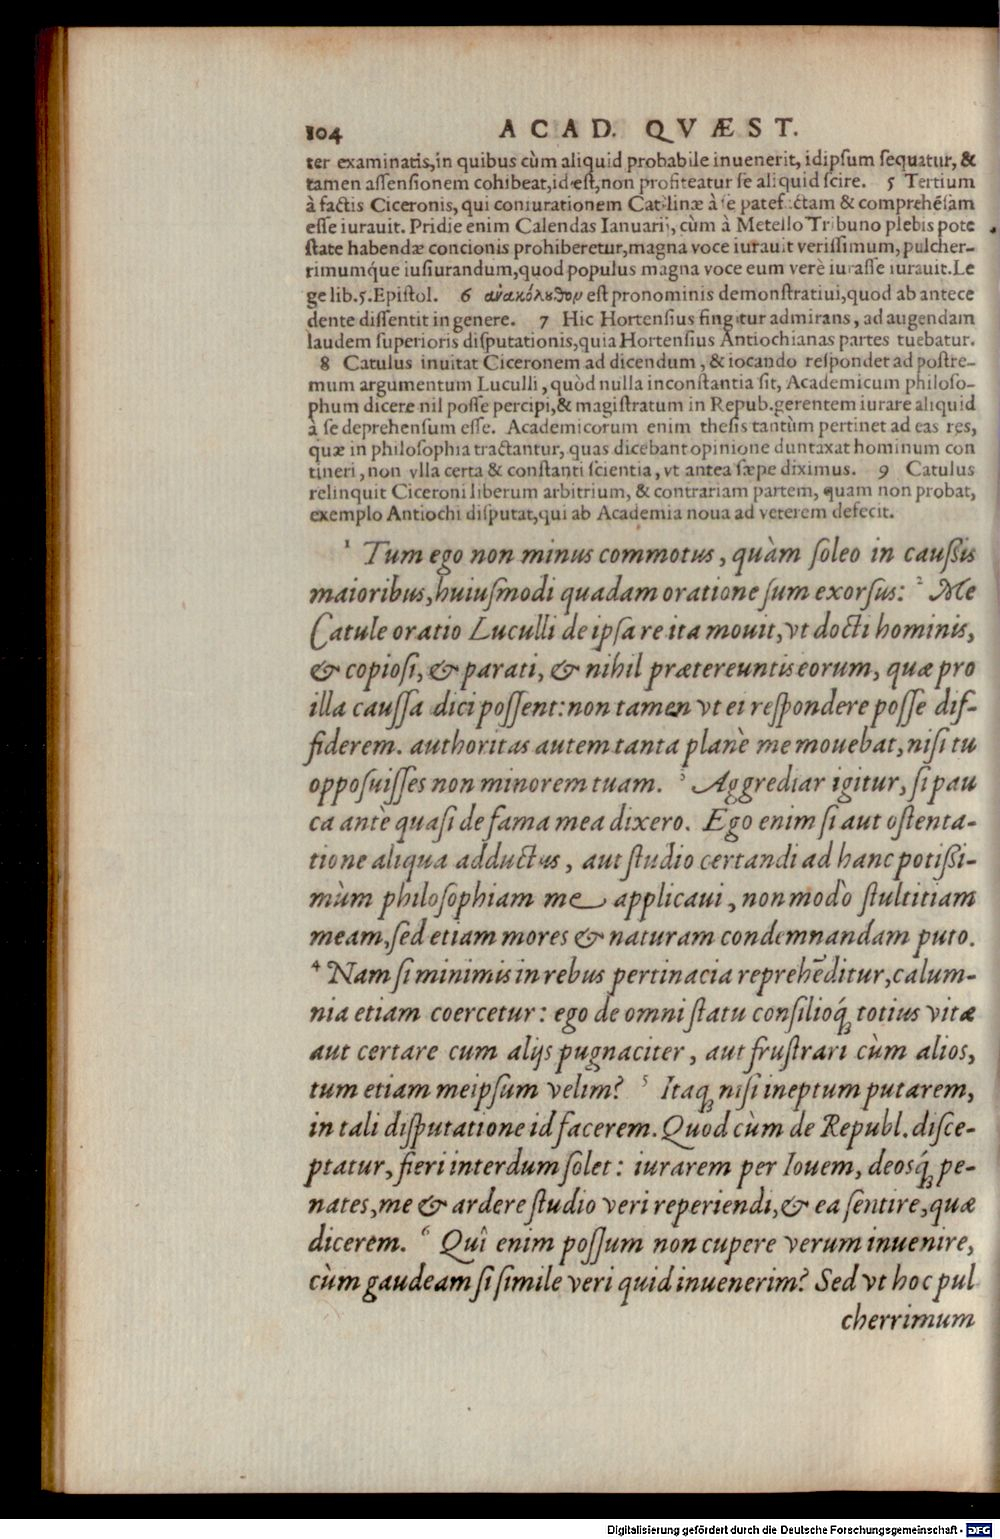 104 ACAD. QVÆST.
ter examinatis, in quibus cùm aliquid probabile inuenerit, idipsum sequatur, &
tamen assensionem cohibeat, id est, non profiteatur se aliquid scire. 5 Tertium
à factis Ciceronis, qui coniurationem Catilinæ à se patefactam & comprehẽsam
esse iurauit. Pridie enim Calendas Ianuarij, cùm à Metello Tribuno plebis pote
state habendæ concionis prohiberetur, magna voce iurauit verissimum, pulcher-
rimumq́ue iusiurandum, quod populus magna voce eum verè iurasse iurauit. Le
ge lib. 5. Epistol. 6 ἀνακόλουθον est pronominis demonstratiui, quod ab antece
dente dissentit in genere. 7 Hic Hortensius fingitur admirans, ad augendam
laudem superioris disputationis, quia Hortensius Antiochianas partes tuebatur.
8 Catulus inuitat Ciceronem ad dicendum, & iocando respondet ad postre-
mum argumentum Luculli, quòd nulla inconstantia sit, Academicum philoso-
phum dicere nil posse percipi, & magistratum in Repub. gerentem iurare aliquid
à se deprehensum esse. Academicorum enim thesis tantùm pertinet ad eas res,
quæ in philosophia tractantur, quas dicebant opinione duntaxat hominum con
tineri, non vlla certa & constanti scientia, vt antea sæpe diximus. 9 Catulus
relinquit Ciceroni liberum arbitrium, & contrariam partem, quam non probat,
exemplo Antiochi disputat, qui ab Academia noua ad veterem defecit.
1 Tum ego non minus commotus, quàm soleo in caussis
maioribus, huiusmodi quadam oratione sum exorsus: 2 Me
Catule oratio Luculli de ipsa re ita mouit, vt docti hominis,
& copiosi, & parati, & nihil prætereuntis eorum, quæ pro
illa caussa dici possent: non tamen vt ei respondere posse dif-
fiderem. authoritas autem tanta planè me mouebat, nisi tu
opposuisses non minorem tuam. 3 Aggrediar igitur, si pau
ca antè quasi de fama mea dixero. Ego enim si aut ostenta-
tione aliqua adductus, aut studio certandi ad hanc potissi-
mùm philosophiam me applicaui, non modò stultitiam
meam, sed etiam mores & naturam condemnandam puto.
4 Nam si minimis in rebus pertinacia reprehẽditur, calum-
nia etiam coercetur: ego de omni statu consilioq́; totius vitæ
aut certare cum alijs pugnaciter, aut frustrari cùm alios,
tum etiam meipsum velim? 5 Itaq; nisi ineptum putarem,
in tali disputatione id facerem. Quod cùm de Republ. disce-
ptatur, fieri interdum solet: iurarem per Iouem, deosq́; pe-
nates, me & ardere studio veri reperiendi, & ea sentire, quæ
dicerem. 6 Quî enim possum non cupere verum inuenire,
cùm gaudeam si simile veri quid inuenerim? Sed vt hoc pul
cherrimum
Digitalisierung gefördert durch die Deutsche Forschungsgemeinschaft - DFG